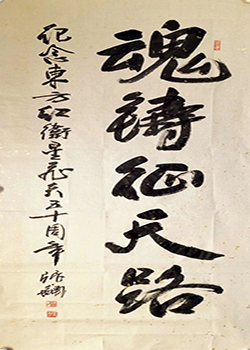 魂铸征天路
纪念东方红卫星飞天五十周年